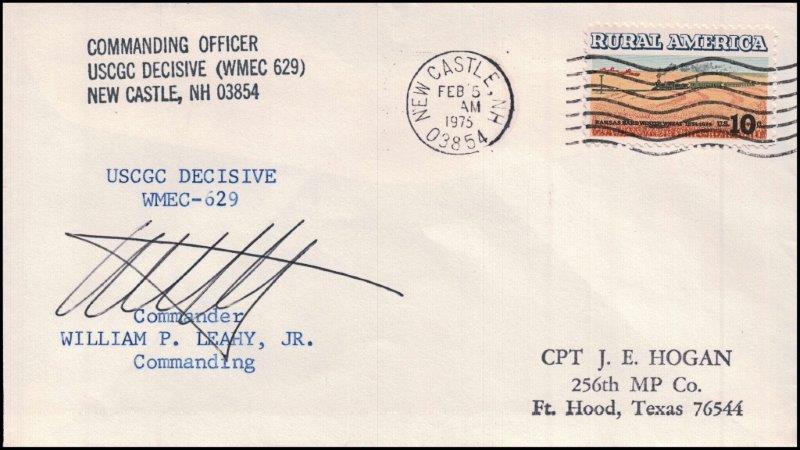 COMMANDING OFFICER
USCGC DECISIVE (WMEC 629)
NEW CASTLE, NH 03854
NEW CASTLE, NH
FEB 5
AM
1975
03854
RURAL AMERICA
KANSAS HARD WINTER WHEAT 1874-1974 U.S. 10c.
USCGC DECISIVE
WMEC-629
Commander
WILLIAM P. LEAHY, JR.
Commanding
CPT J. E. HOGAN
256th MP Co.
Ft. Hood, Texas 76544